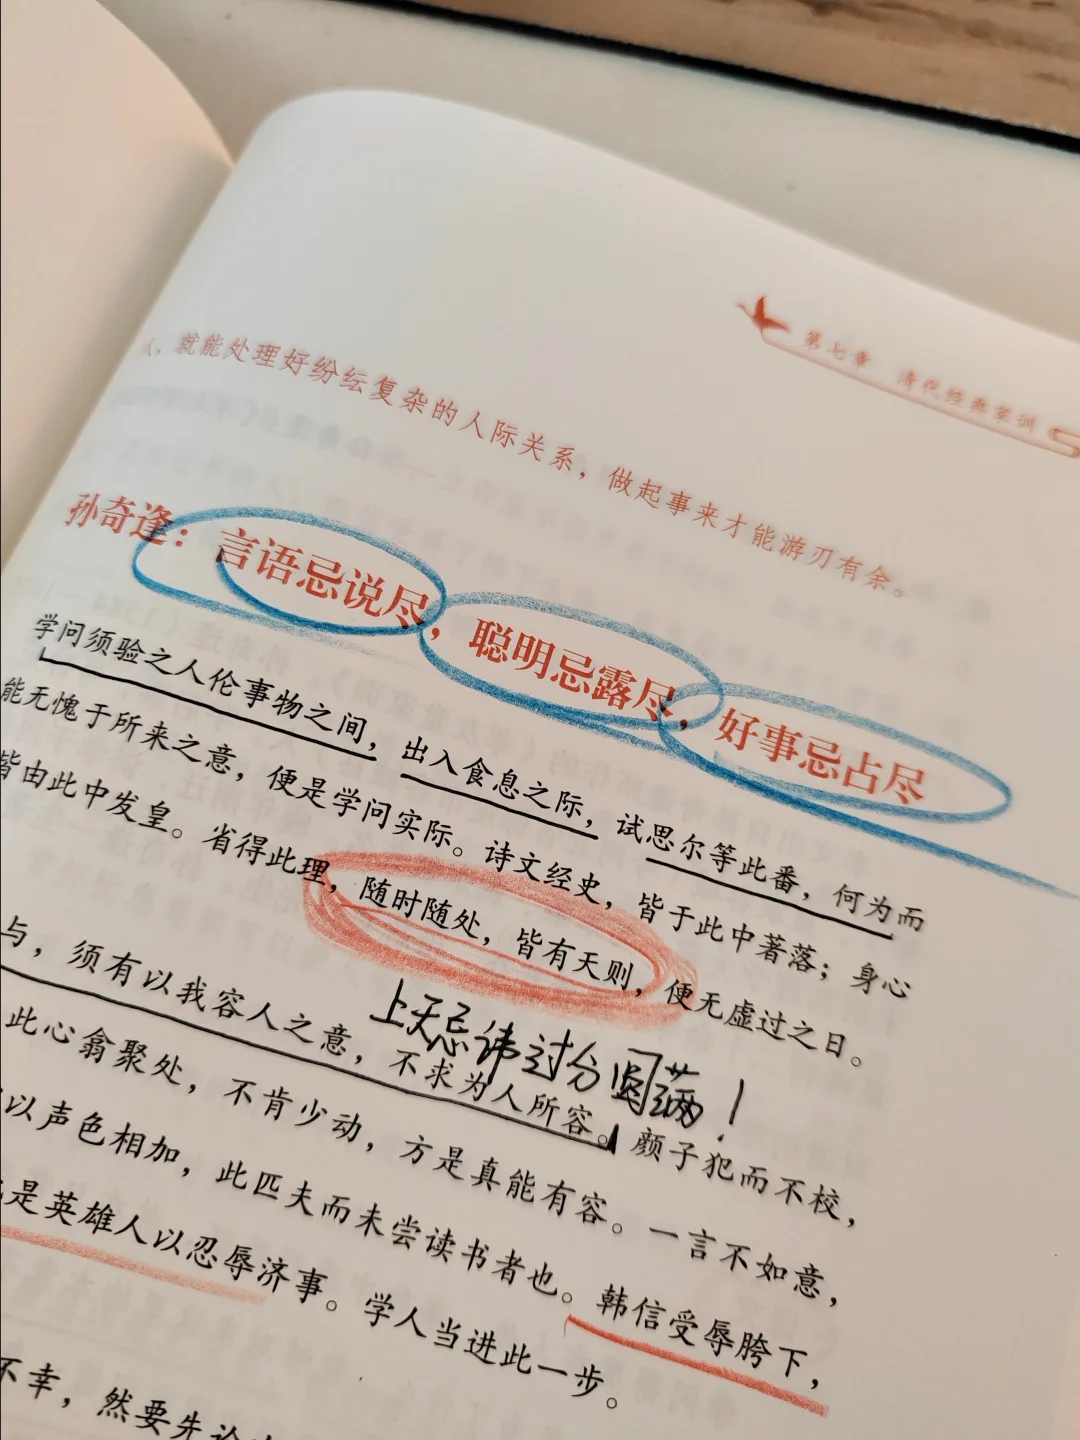 第七章 清代经典家训
人，就能处理好纷纭复杂的人际关系，做起事来才能游刃有余。
孙奇逢：言语忌说尽，聪明忌露尽，好事忌占尽
学问须验之人伦事物之间，出入食息之际，试思尔等此番，何为而
能无愧于所来之意，便是学问实际。诗文经史，皆于此中著落；身心
皆由此中发皇。省得此理，随时随处，皆有天则，便无虚过之日。
上天忌讳过分圆满！
与，须有以我容人之意，不求为人所容。颜子犯而不校，
此心翕聚处，不肯少动，方是真能有容。一言不如意，
以声色相加，此匹夫而未尝读书者也。韩信受辱胯下，
是英雄人以忍辱济事。学人当进此一步。
不幸，然要先论